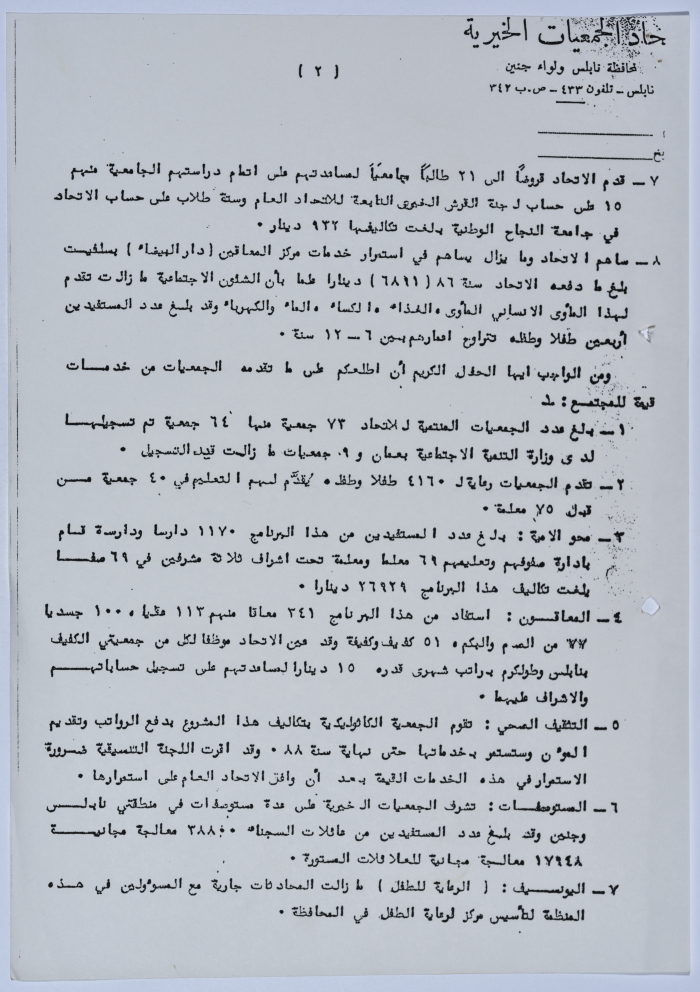 حاد الجمعيات الخيرية
محافظة نابلس ولواء جنين
نابلس - تلفون ٤٣٣ - ص.ب ٣٤٢
( ٢ )
٧ - قدم الاتحاد قروضًا الى ٢١ طالبًا جامعيًا لمساعدتهم على اتمام دراستهم الجامعية منهم
١٥ على حساب لجنة القرش الخيري التابعة للاتحاد العام وستة طلاب على حساب الاتحاد
في جامعة النجاح الوطنية بلغت تكاليفها ٩٣٢ دينار ٠
٨ - ساهم الاتحاد وما يزال يساهم في استمرار خدمات مركز المعاقين (دار البيضاء) بسلفيت
بلغ ما دفعه الاتحاد سنة ٨٦ (٦٨٩١) دينارا علما بأن الشئون الاجتماعية ما زالت تقدم
لهذا المأوى الانساني المأوى، الغذاء، الكساء، الماء والكهرباء وقد بلغ عدد المستفيدين
أربعين طفلا وطفله تتراوح اعمارهم بين ٦ - ١٢ سنة ٠
ومن الواجب ايها الحفل الكريم أن اطلعكم على ما تقدمه الجمعيات من خدمات
قيمة للمجتمع : -
١ - بلغ عدد الجمعيات المنتمية للاتحاد ٧٣ جمعية منها ٦٤ جمعية تم تسجيلها
لدى وزارة التنمية الاجتماعية بعمان و ٠٩ جمعيات ما زالت قيد التسجيل ٠
٢ - تقدم الجمعيات رعاية لـ ٤١٦٠ طفلا وطفله يُقدَّم لهم التعليم في ٤٠ جمعية من
قبل ٧٥ معلمة ٠
٣ - محو الامية : بلغ عدد المستفيدين من هذا البرنامج ١١٧٠ دارسا ودارسة قام
بادارة صفوفهم وتعليمهم ٦٩ معلما ومعلمة تحت اشراف ثلاثة مشرفين في ٦٩ صفا
بلغت تكاليف هذا البرنامج ٢٦٩٢٩ دينارا ٠
٤ - المعاقون : استفاد من هذا البرنامج ٣٤١ معاقا منهم ١١٣ عقليا، ١٠٠ جسديا
٧٧ من الصم والبكم، ٥١ كفيف وكفيفة وقد عين الاتحاد موظفا لكل من جمعيتي الكفيف
بنابلس وطولكرم براتب شهري قدره ١٥ دينارا لمساعدتهم على تسجيل حساباتهم
والاشراف عليها ٠
٥ - التثقيف الصحي : تقوم الجمعية الكاثوليكية بتكاليف هذا المشروع بدفع الرواتب وتقديم
المؤن وستستمر بخدماتها حتى نهاية سنة ٨٨ ٠ وقد اقرت اللجنة التنسيقية ضرورة
الاستمرار في هذه الخدمات القيمة بعد أن وافق الاتحاد العام على استمرارها ٠
٦ - المستوصفات : تشرف الجمعيات الخيرية على عدة مستوصفات في منطقتي نابلس
وجنين وقد بلغ عدد المستفيدين من عائلات السجناء معالجة مجانية
١٧٩٤٨ معالجة مجانية للعائلات المستورة ٠
٧ - اليونسيف : ( الرعاية للطفل ) ما زالت المحادثات جارية مع المسؤولين في هذه
المنظمة لتأسيس مركز لرعاية الطفل في المحافظة ٠